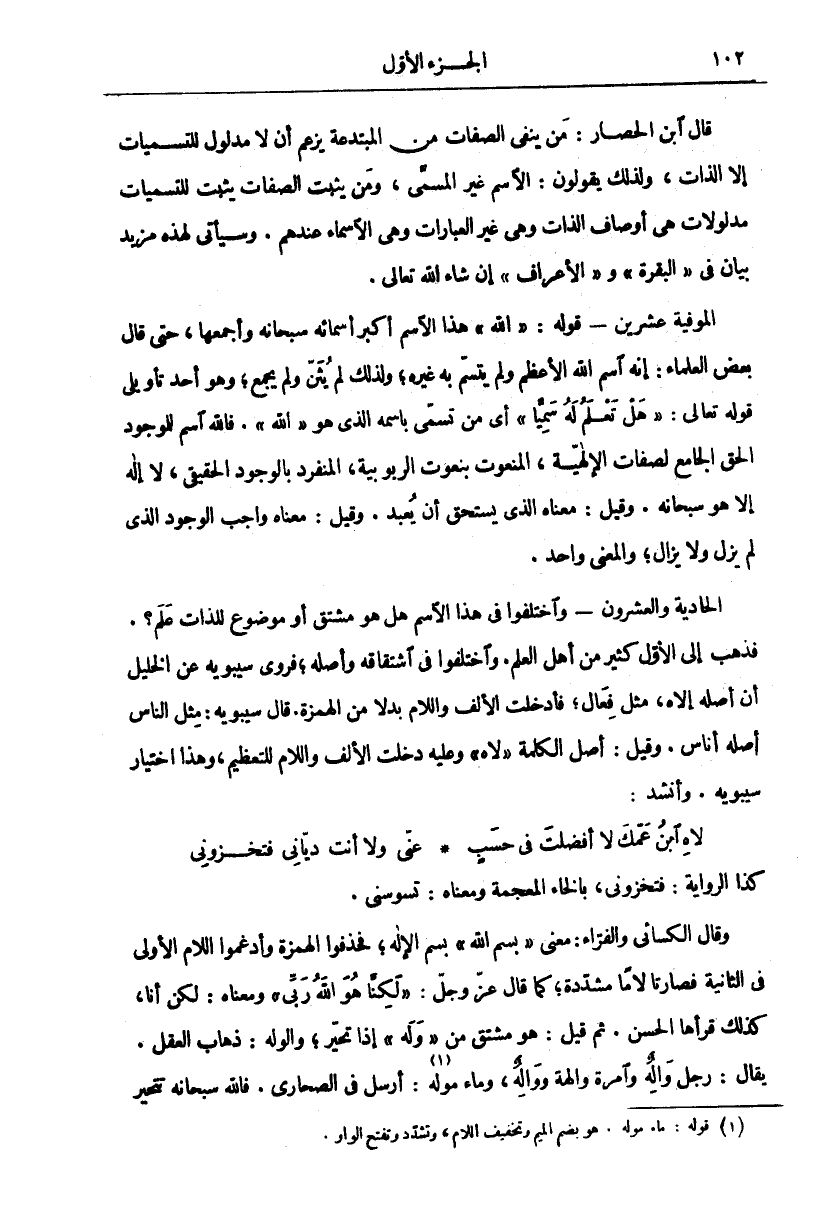 ١٠٢ الجزء الأول
قال ٱبن الحصار : مَن ينفى الصفات من المبتدعة يزعم أن لا مدلول للتسميات
إلا الذات ، ولذلك يقولون : الٱسم غير المسمَّى ، ومَن يثبت الصفات يثبت للتسميات
مدلولات هى أوصاف الذات وهى غير العبارات وهى الأسماء عندهم . وسيأتى لهذه مزيد
بيان فى « البقرة » و « الأعراف » إن شاء الله تعالى .
الموفية عشرين — قوله : « الله » هذا الٱسم أكبر أسمائه سبحانه وأجمعها ، حتى قال
بعض العلماء : إنه ٱسم الله الأعظم ولم يتسمّ به غيره ؛ ولذلك لم يُثَنّ ولم يجمع ؛ وهو أحد تأويلى
قوله تعالى : « هَلْ تَعْلَمُ لَهُ سَمِيًّا » أى من تسمّى باسمه الذى هو « الله » . فالله ٱسم للوجود
الحق الجامع لصفات الإلٰهيّة ، المنعوت بنعوت الربوبية ، المنفرد بالوجود الحقيقى ، لا إلٰه
إلا هو سبحانه . وقيل : معناه الذى يستحق أن يُعبد . وقيل : معناه واجب الوجود الذى
لم يزل ولا يزال ؛ والمعنى واحد .
الحادية والعشرون — وٱختلفوا فى هذا الٱسم هل هو مشتق أو موضوع للذات عَلَم ؟ .
فذهب إلى الأوّل كثير من أهل العلم . وٱختلفوا فى ٱشتقاقه وأصله ؛ فروى سيبويه عن الخليل
أن أصله إلاه ، مثل فِعَال ؛ فأدخلت الألف واللام بدلا من الهمزة . قال سيبويه : مِثل الناس
أصله أناس . وقيل : أصل الكلمة « لاه » وعليه دخلت الألف واللام للتعظيم ، وهذا اختيار
سيبويه . وأنشد :
لاهِ ٱبنُ عَمّكَ لا أفضلتَ فى حسَبٍ * عنّى ولا أنت ديّانى فتخزونى
كذا الرواية : فتخزونى ، بالخاء المعجمة ومعناه : تسوسنى .
وقال الكسائى والفرّاء : معنى « بسم الله » بسم الإلٰه ؛ فحذفوا الهمزة وأدغموا اللام الأولى
فى الثانية فصارتا لامًا مشدّدة ؛ كما قال عزّ وجلّ : « لَكِنَّا هُوَ اللهُ رَبِّى » ومعناه : لكن أنا ،
كذلك قرأها الحسن . ثم قيل : هو مشتق من « وَلَه » إذا تحيّر ؛ والوله : ذهاب العقل .
يقال : رجل وَالِهٌ وٱمرة والهة ووَالِهٌ ، وماء مولَه (١) : أرسل فى الصحارى . فالله سبحانه تتحير
(١) قوله : ماء موله . هو بضم الميم وتخفيف اللام ، وتشدّد وتفتح الواو .